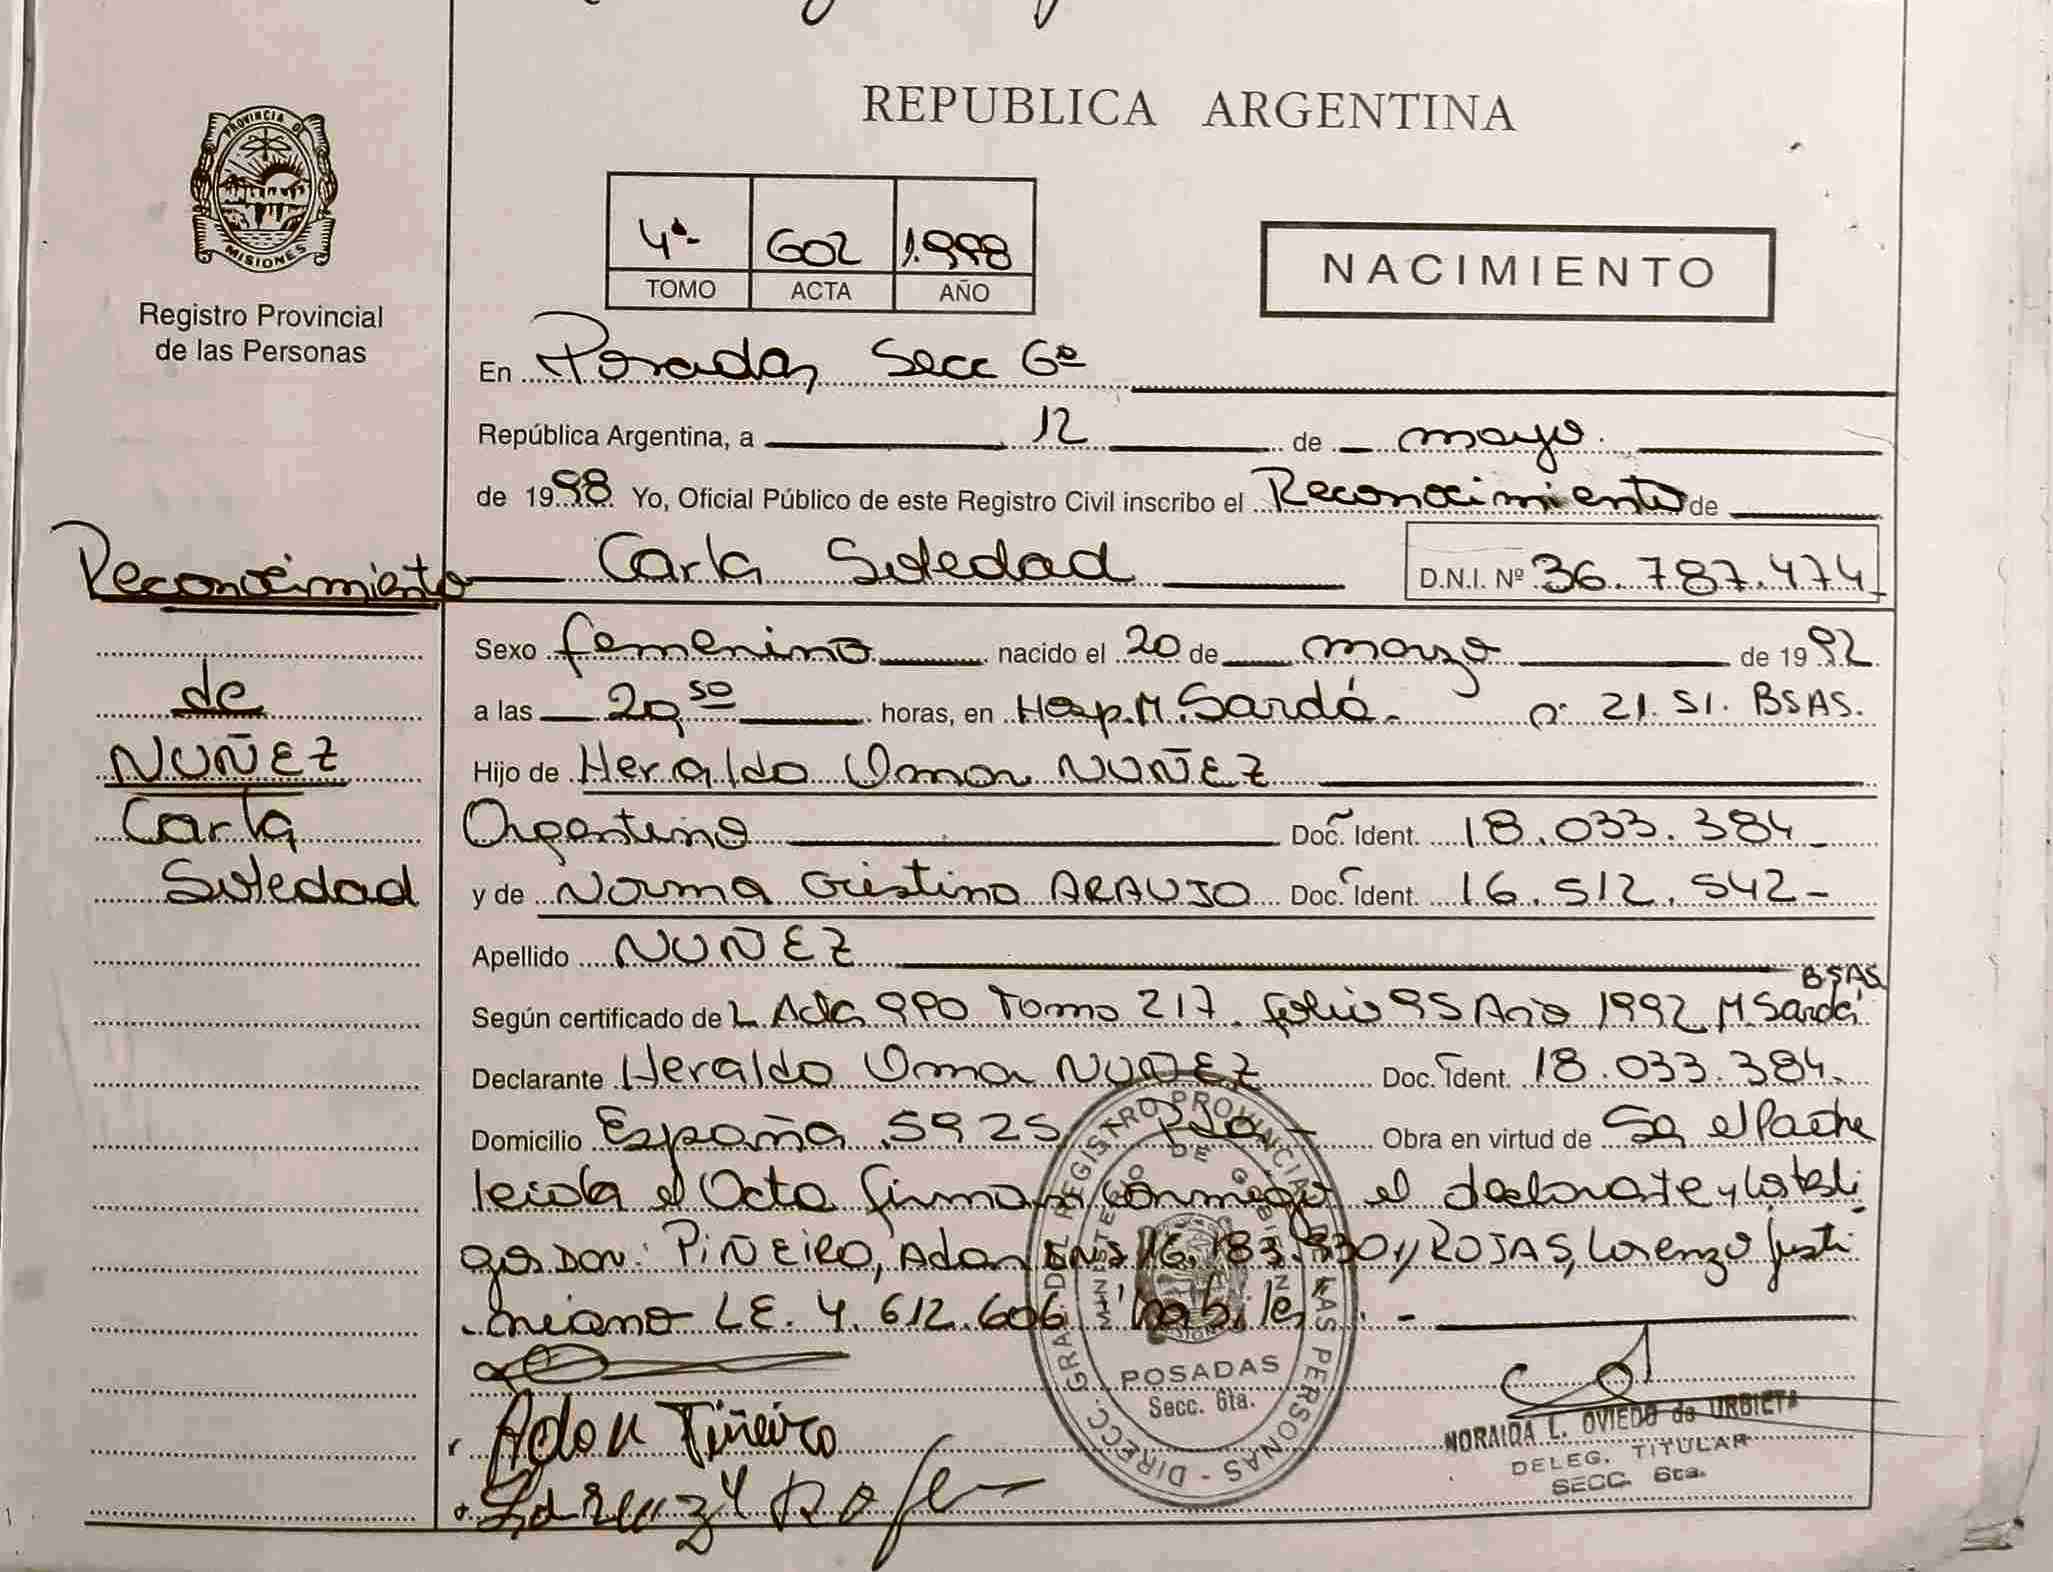 PROVINCIA DE
MISIONES
Registro Provincial
de las Personas
REPUBLICA ARGENTINA
4ª 602 1.998
TOMO ACTA AÑO
NACIMIENTO
En Posadas Secc 6ª
República Argentina, a 12 de mayo
de 1998 Yo, Oficial Público de este Registro Civil inscribo el Reconocimiento de
Carla Soledad D.N.I. Nº 36.787.474
Reconocimiento
de
NUÑEZ
Carla
Soledad
Sexo femenino nacido el 20 de marzo de 1992
a las 20,50 horas, en Hosp. M. Sardá. 21.51. BSAS.
Hijo de Heraldo Omar NUÑEZ
Argentino Doc. Ident. 18.033.384
y de Norma Cristina ARAUJO Doc. Ident. 16.512.542-
Apellido NUÑEZ
BSAS
Según certificado de L Acta 990 Tomo 217 folio 95 Año 1992 M. Sardá
Declarante Heraldo Omar NUÑEZ Doc. Ident. 18.033.384.
Domicilio España 5925 Pdas- Obra en virtud de Ser el Padre
leida el Acta firman conmigo el declarante y los testi
gos Don: PIÑEIRO, Adan DNI 16.183.930 y ROJAS, Lorenzo Justi
niano LE. 4.612.606 "habiles". -
Adan Piñeiro
DIRECC. GRAL. DEL REGISTRO PROVINCIAL DE LAS PERSONAS
MINISTERIO DE GOBIERNO
POSADAS
Secc. 6ta.
NORAIDA L. OVIEDO de URBIETA
DELEG. TITULAR
SECC. 6ta.